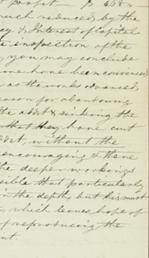 profit. To 1882
much reduced by the
ay & Interest of Capital
e inspection of the
you may conclude
one hone been connected
as the works advanced,
eason for abandoning
the adit & sinking the
that they have cut
dit, without the
encouraging & have
the deeper workings
sible that particularly
in the depth, but his most
, which leaves hope of
of reproducing the
nt.